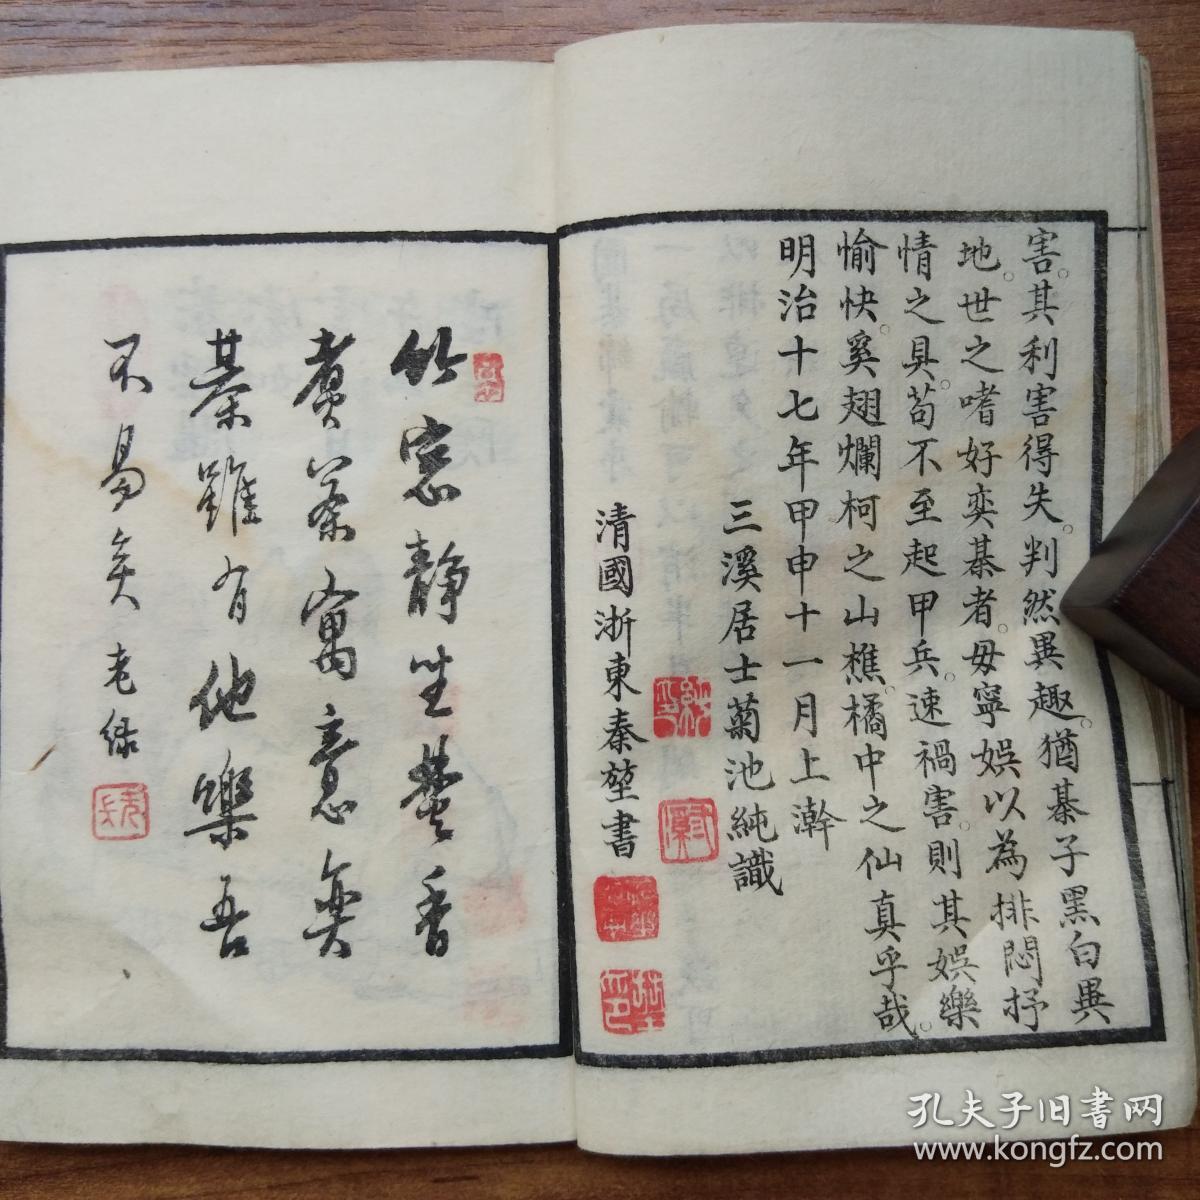 害。其利害得失。判然異趣。猶棊子黑白異
地。世之嗜好奕棊者。毋寧娯以為排悶抒
情之具。苟不至起甲兵。速禍害。則其娯樂
愉快。奚翅爛柯之山樵。橘中之仙真乎哉。
明治十七年甲申十一月上澣
三溪居士菊池純識
清國浙東秦堃書
竹窓靜坐焚香
煮茶寓意奕
棊雖有他樂吾
不易矣
孔夫子旧书网
www.kongfz.com